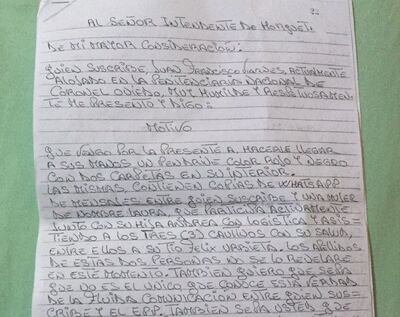 AL SEÑOR INTENDENTE DE HORQUETA
DE MI MAYOR CONSIDERACIÓN:
QUIEN SUSCRIBE, JUAN FRANCISCO VIARDES, ACTUALMENTE
ALOJADO EN LA PENITENCIARIA NACIONAL DE
CORONEL OVIEDO, MUY HUMILDE Y RESPETUOSAMEN
TE ME PRESENTO Y DIGO:
MOTIVO
QUE VENGO POR LA PRESENTE A HACERLE LLEGAR
A SUS MANOS UN PENDRIVE COLOR ROJO Y NEGRO
CON DOS CARPETAS EN SU INTERIOR.
LAS MISMAS, CONTIENEN COPIAS DE WHATSAPP
DE MENSAJES ENTRE QUIEN SUSCRIBE Y UNA MUJER
DE NOMBRE LAURA, QUE PARTICIPA ACTIVAMENTE
JUNTO CON SU HIJA ANDREA CON LOGISTICA Y ASIS=
TIENDO A LOS TRES CAUTIVOS CON SU SALUD,
ENTRE ELLOS A SU TIO FELIX URBIETA. LOS APELLIDOS
DE ESTAS DOS PERSONAS NO SE LO REVELARE
EN ESTE MOMENTO. TAMBIEN QUIERO QUE SEPA
QUE NO ES EL UNICO QUE CONOCE ESTA VERDAD
DE LA FLUIDA COMUNICACION ENTRE QUIEN SUS=
CRIBE Y EL E.P.P. TAMBIEN SEPA USTED QUE